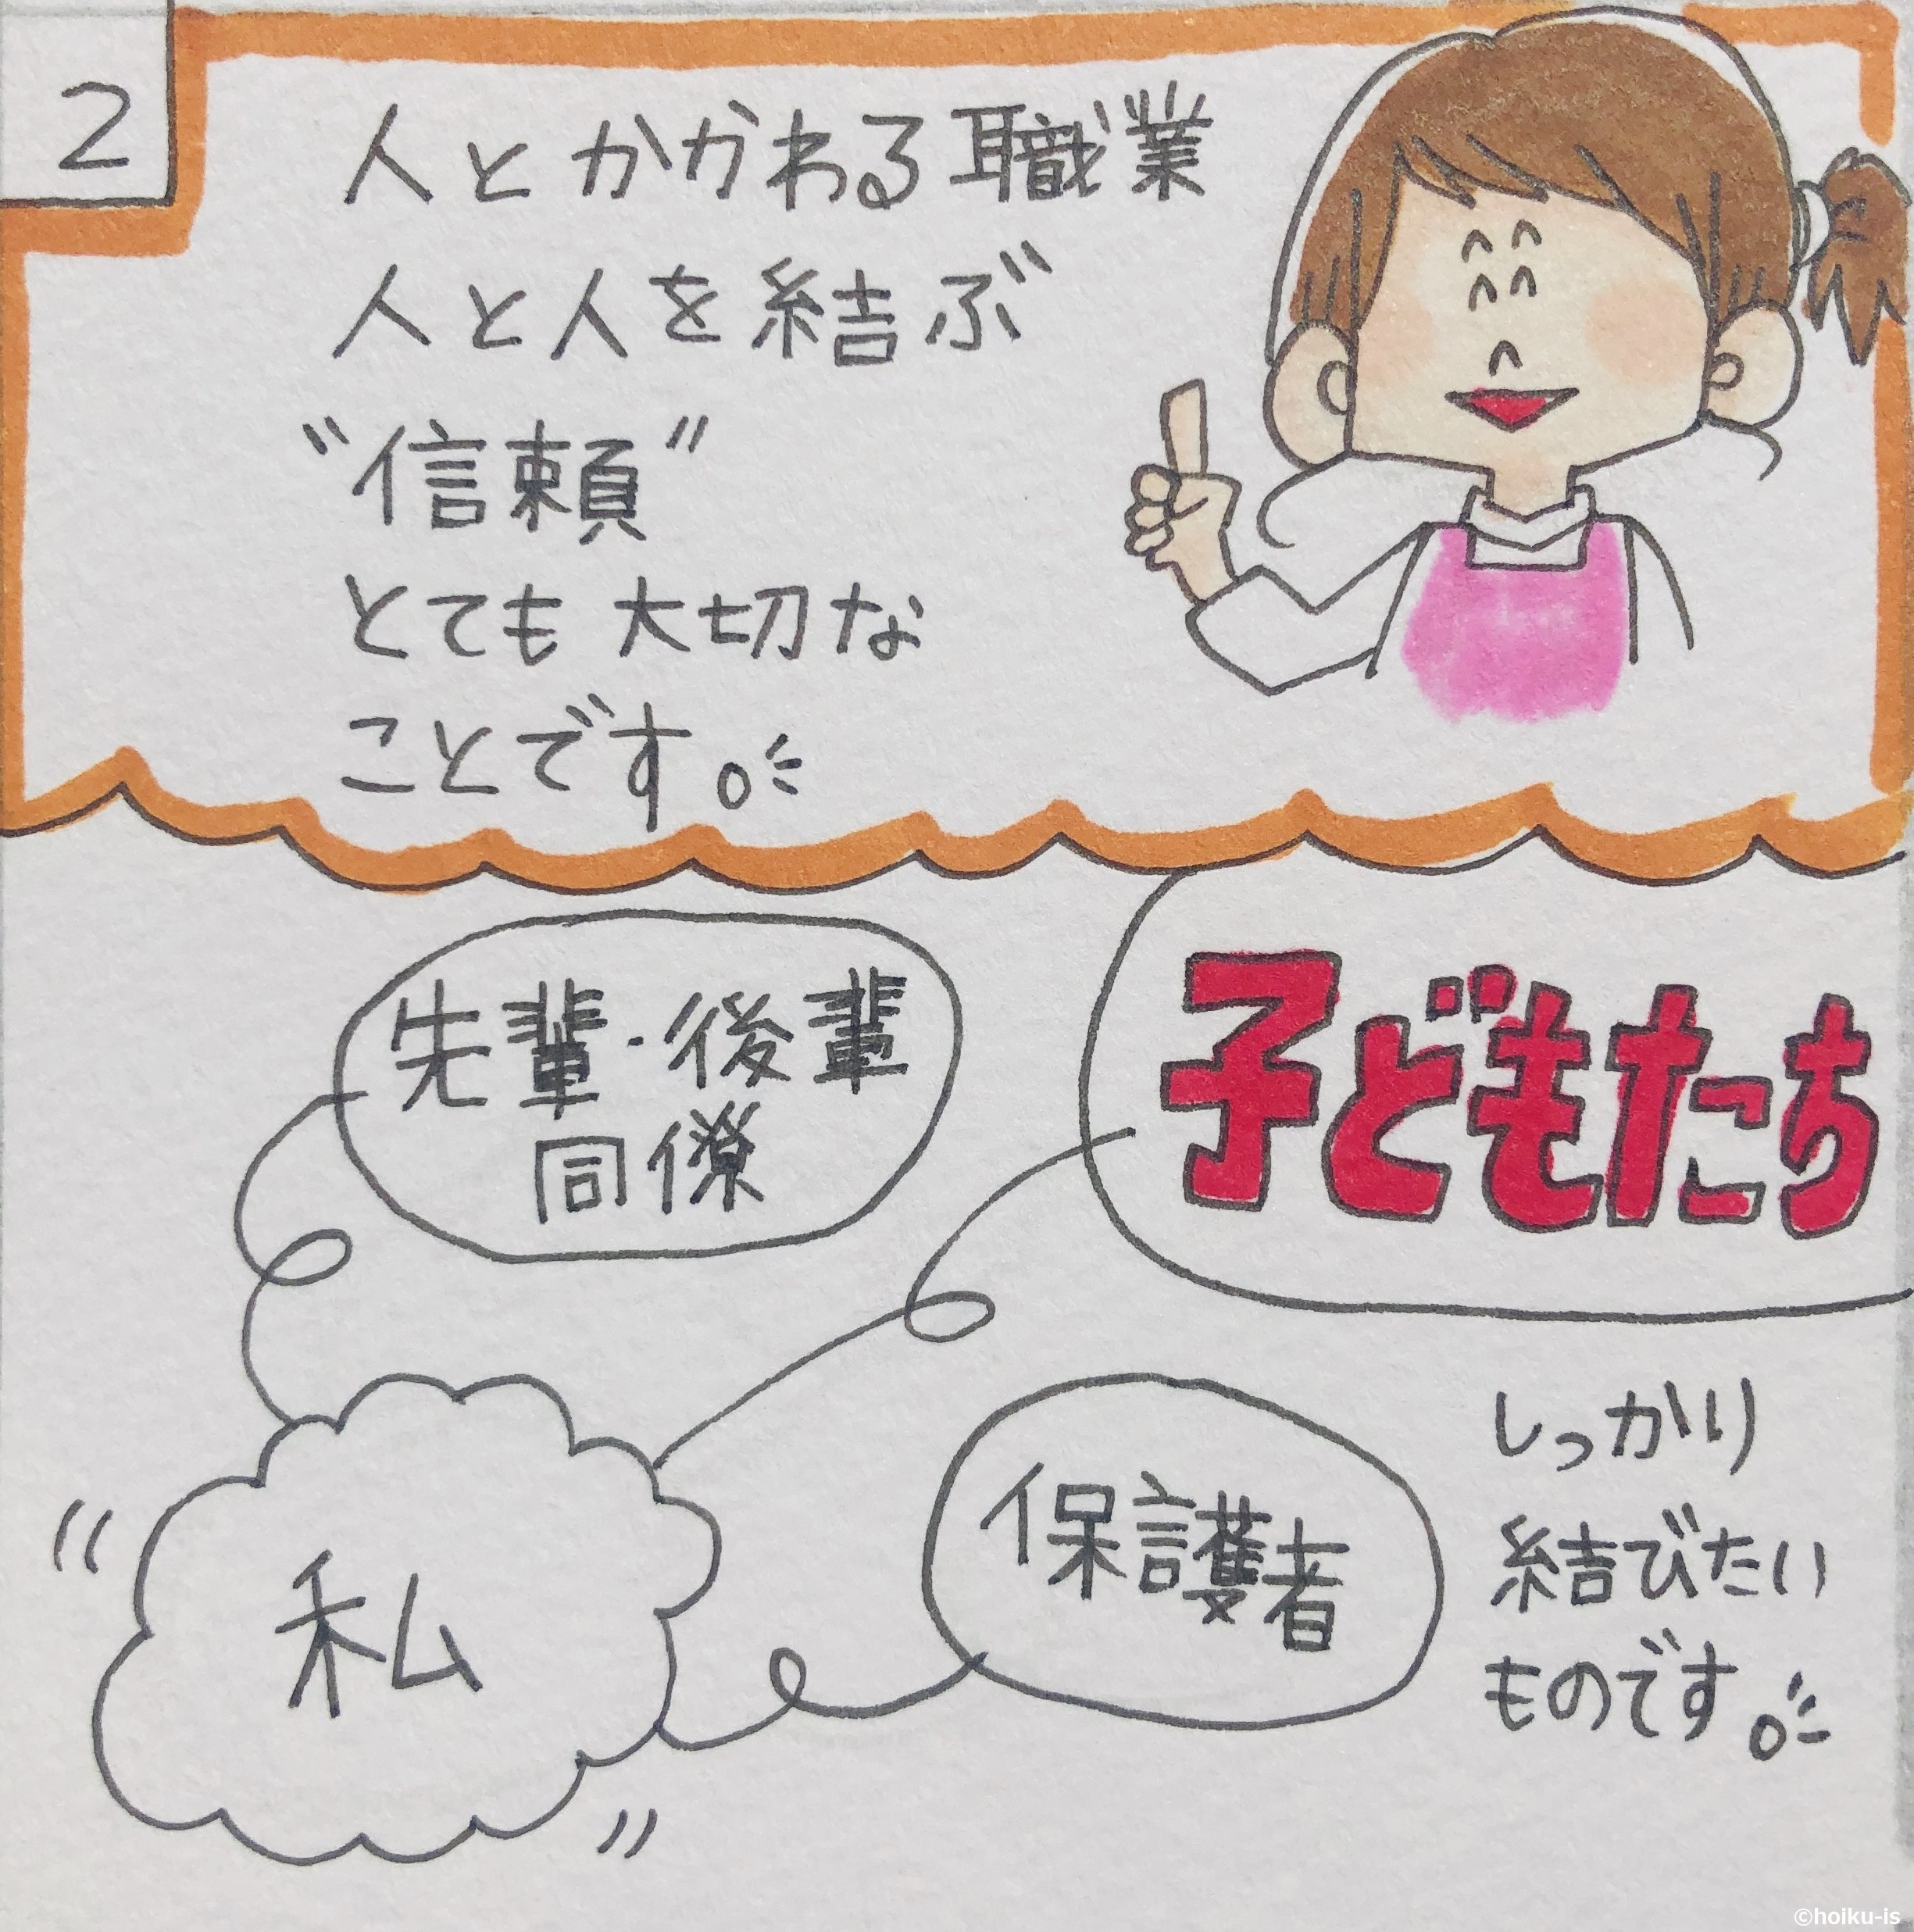 2
人とかかわる職業
人と人を結ぶ
〝信頼〟
とても大切な
ことです。
先輩・後輩
同僚
子どもたち
しっかり
結びたい
ものです。
保護者
私
©hoiku-is